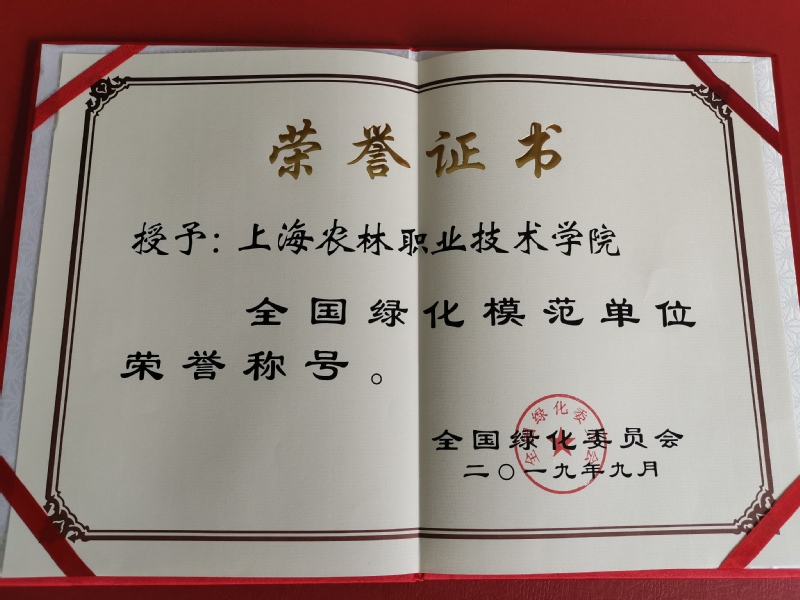 荣誉证书
授予：上海农林职业技术学院
全国绿化模范单位
荣誉称号。
全国绿化委员会
二〇一九年九月
全国绿化委员会